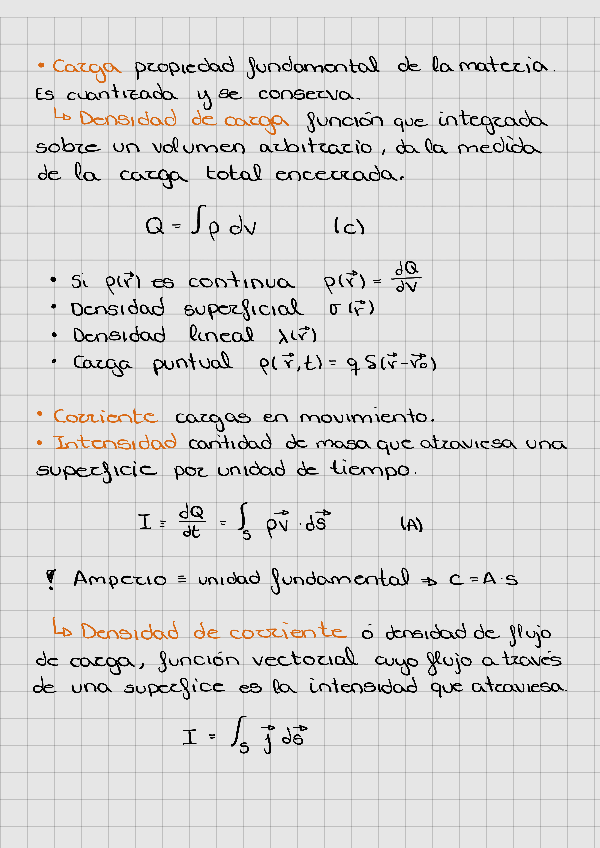 • Carga propiedad fundamental de la materia.
Es cuantizada y se conserva.
↳ Densidad de carga función que integrada
sobre un volumen arbitrario, da la medida
de la carga total encerrada.
Q = ∫ρ dv (C)
• Si ρ(r⃗) es continua ρ(r⃗) = dQ/dV
• Densidad superficial σ(r⃗)
• Densidad lineal λ(r⃗)
• Carga puntual ρ(r⃗,t) = q δ(r⃗-r⃗₀)
• Corriente cargas en movimiento.
• Intensidad cantidad de masa que atraviesa una
superficie por unidad de tiempo.
I = dQ/dt = ∫_S ρv⃗ · ds⃗ (A)
! Amperio ≡ unidad fundamental ⇒ C = A·s
↳ Densidad de corriente ó densidad de flujo
de carga, función vectorial cuyo flujo a través
de una superfice es la intensidad que atraviesa.
I = ∫_S j⃗ ds⃗